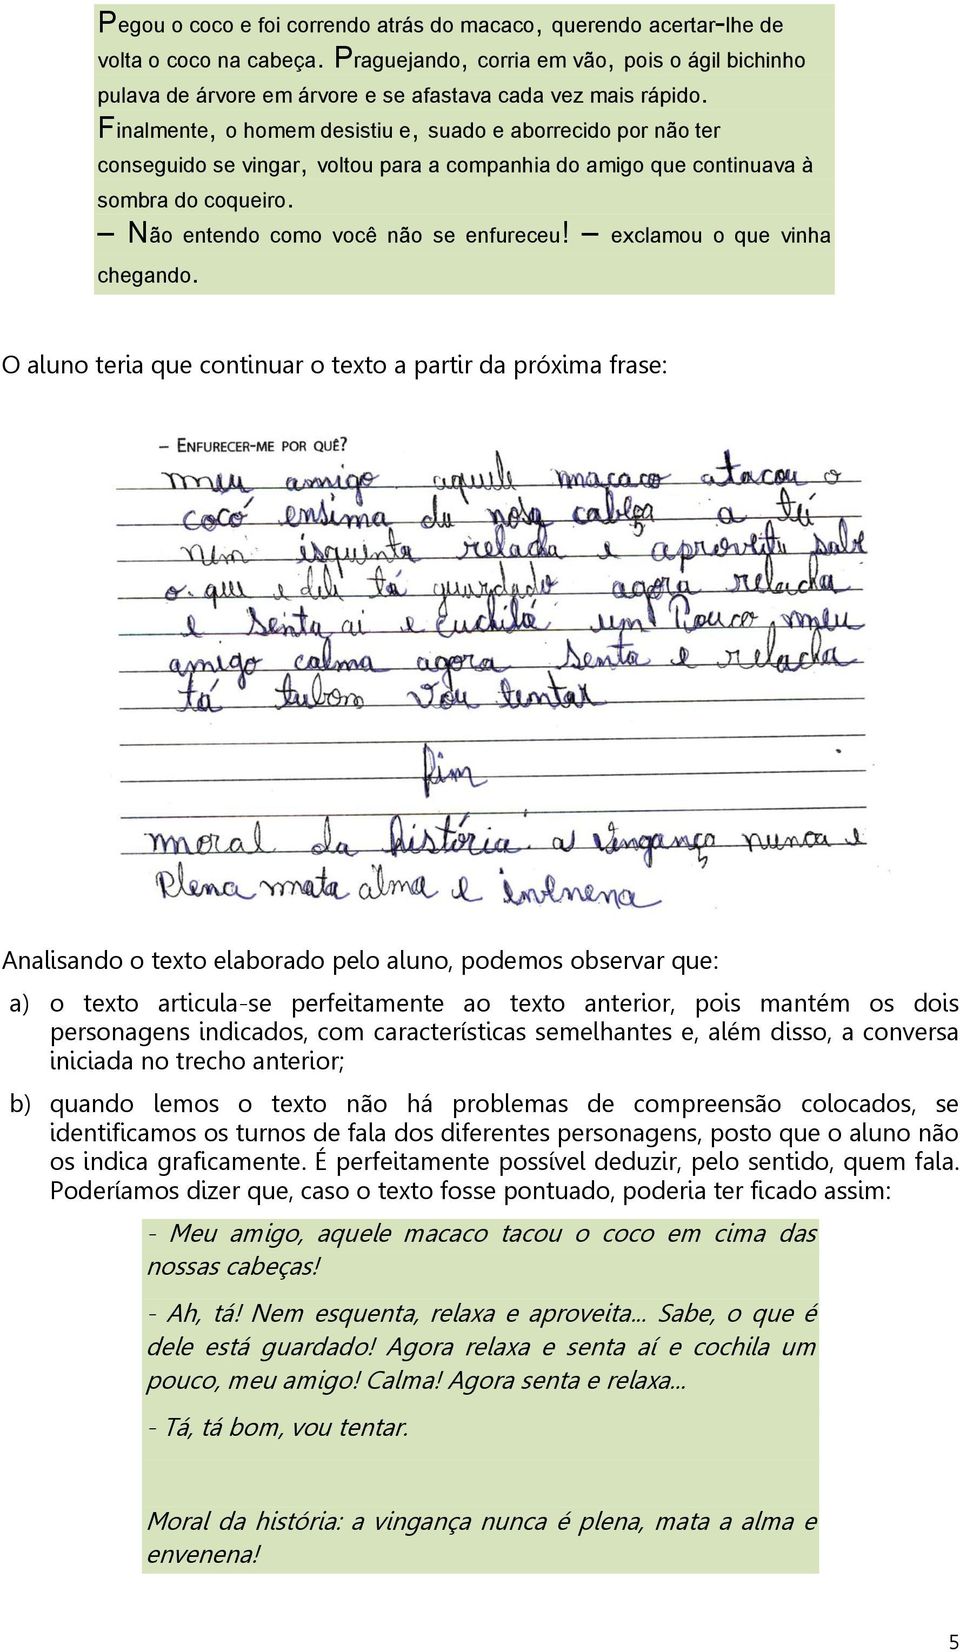 Pegou o coco e foi correndo atrás do macaco, querendo acertar-lhe de
volta o coco na cabeça. Praguejando, corria em vão, pois o ágil bichinho
pulava de árvore em árvore e se afastava cada vez mais rápido.
Finalmente, o homem desistiu e, suado e aborrecido por não ter
conseguido se vingar, voltou para a companhia do amigo que continuava à
sombra do coqueiro.
– Não entendo como você não se enfureceu! – exclamou o que vinha
chegando.
O aluno teria que continuar o texto a partir da próxima frase:
– ENFURECER-ME POR QUÊ?
meu amigo aquele macaco atacou o
cocó ensima da nosa cabeça a tá
nem isquinta relacha e aproveita sabe
o que e dele tá guardado agora relacha
e senta ai e cuchila um Pouco, meu
amigo calma agora senta e relacha
tá tubom vou tentar
fim
moral da história: a vingança nunca e
Plena mata alma e invenena
Analisando o texto elaborado pelo aluno, podemos observar que:
a) o texto articula-se perfeitamente ao texto anterior, pois mantém os dois
personagens indicados, com características semelhantes e, além disso, a conversa
iniciada no trecho anterior;
b) quando lemos o texto não há problemas de compreensão colocados, se
identificamos os turnos de fala dos diferentes personagens, posto que o aluno não
os indica graficamente. É perfeitamente possível deduzir, pelo sentido, quem fala.
Poderíamos dizer que, caso o texto fosse pontuado, poderia ter ficado assim:
- Meu amigo, aquele macaco tacou o coco em cima das
nossas cabeças!
- Ah, tá! Nem esquenta, relaxa e aproveita... Sabe, o que é
dele está guardado! Agora relaxa e senta aí e cochila um
pouco, meu amigo! Calma! Agora senta e relaxa...
- Tá, tá bom, vou tentar.
Moral da história: a vingança nunca é plena, mata a alma e
envenena!
5